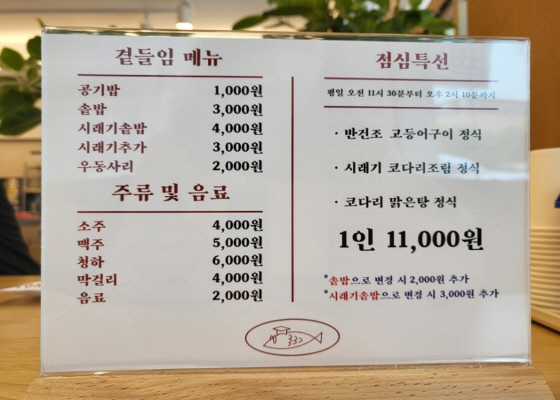 곁들임 메뉴
공기밥 1,000원
솥밥 3,000원
시래기솥밥 4,000원
시래기추가 3,000원
우동사리 2,000원
주류 및 음료
소주 4,000원
맥주 5,000원
청하 6,000원
막걸리 4,000원
음료 2,000원
점심특선
평일 오전 11시 30분부터 오후 2시 10분까지
· 반건조 고등어구이 정식
· 시래기 코다리조림 정식
· 코다리 맑은탕 정식
1인 11,000원
*솥밥으로 변경 시 2,000원 추가
*시래기솥밥으로 변경 시 3,000원 추가